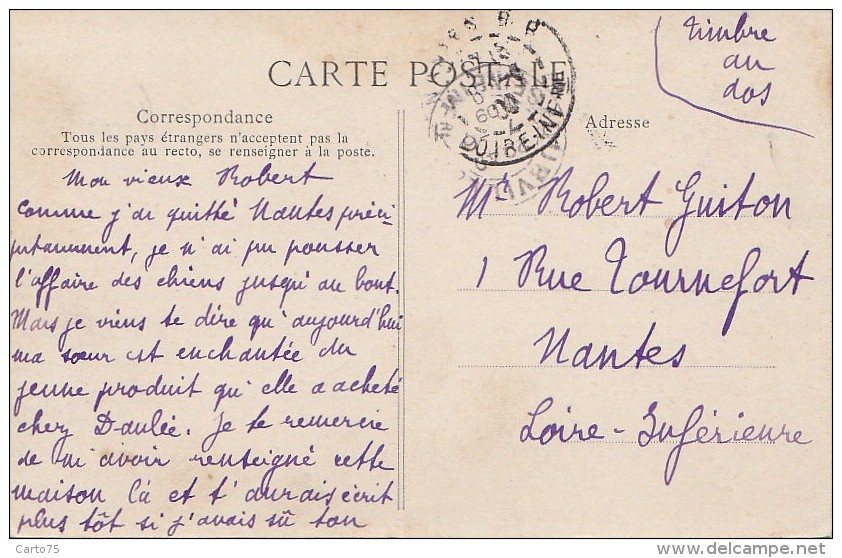 Timbre
au
dos
CARTE POSTALE
Correspondance
Tous les pays étrangers n'acceptent pas la
correspondance au recto, se renseigner à la poste.
Mon vieux Robert
comme j'ai quitté Nantes préci-
pitamment, je n'ai pu pousser
l'affaire des chiens jusqu'au bout.
Mais je viens te dire qu'aujourd'hui
ma sœur est enchantée du
jeune produit qu'elle a acheté
chez Daulée. Je te remercie
de m'avoir renseigné cette
maison là et t'aurais écrit
plus tôt si j'avais sû ton
Adresse
Mr Robert Guiton
1 Rue Tournefort
Nantes
Loire-Inférieure
Carto75
www.delcampe.net